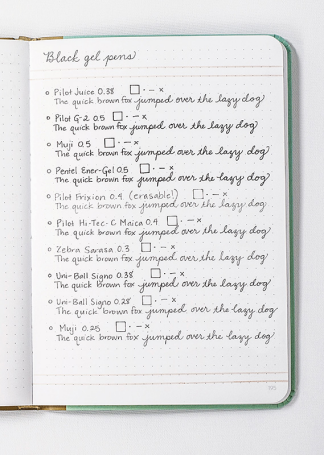 Black gel pens
Pilot Juice 0.38 □ · – ×
The quick brown fox jumped over the lazy dog
Pilot G-2 0.5 □ · – ×
The quick brown fox jumped over the lazy dog
Muji 0.5 □ · – ×
The quick brown fox jumped over the lazy dog
Pentel Ener-Gel 0.5 □ · – ×
The quick brown fox jumped over the lazy dog
Pilot Frixion 0.4 (erasable!) □ · – ×
The quick brown fox jumped over the lazy dog
Pilot Hi-Tec-C Maica 0.4 □ · – ×
The quick brown fox jumped over the lazy dog
Zebra Sarasa 0.3 □ · – ×
The quick brown fox jumped over the lazy dog
Uni-Ball Signo 0.38 □ · – ×
The quick brown fox jumped over the lazy dog
Uni-Ball Signo 0.28 □ · – ×
The quick brown fox jumped over the lazy dog
Muji 0.25 □ · – ×
The quick brown fox jumped over the lazy dog